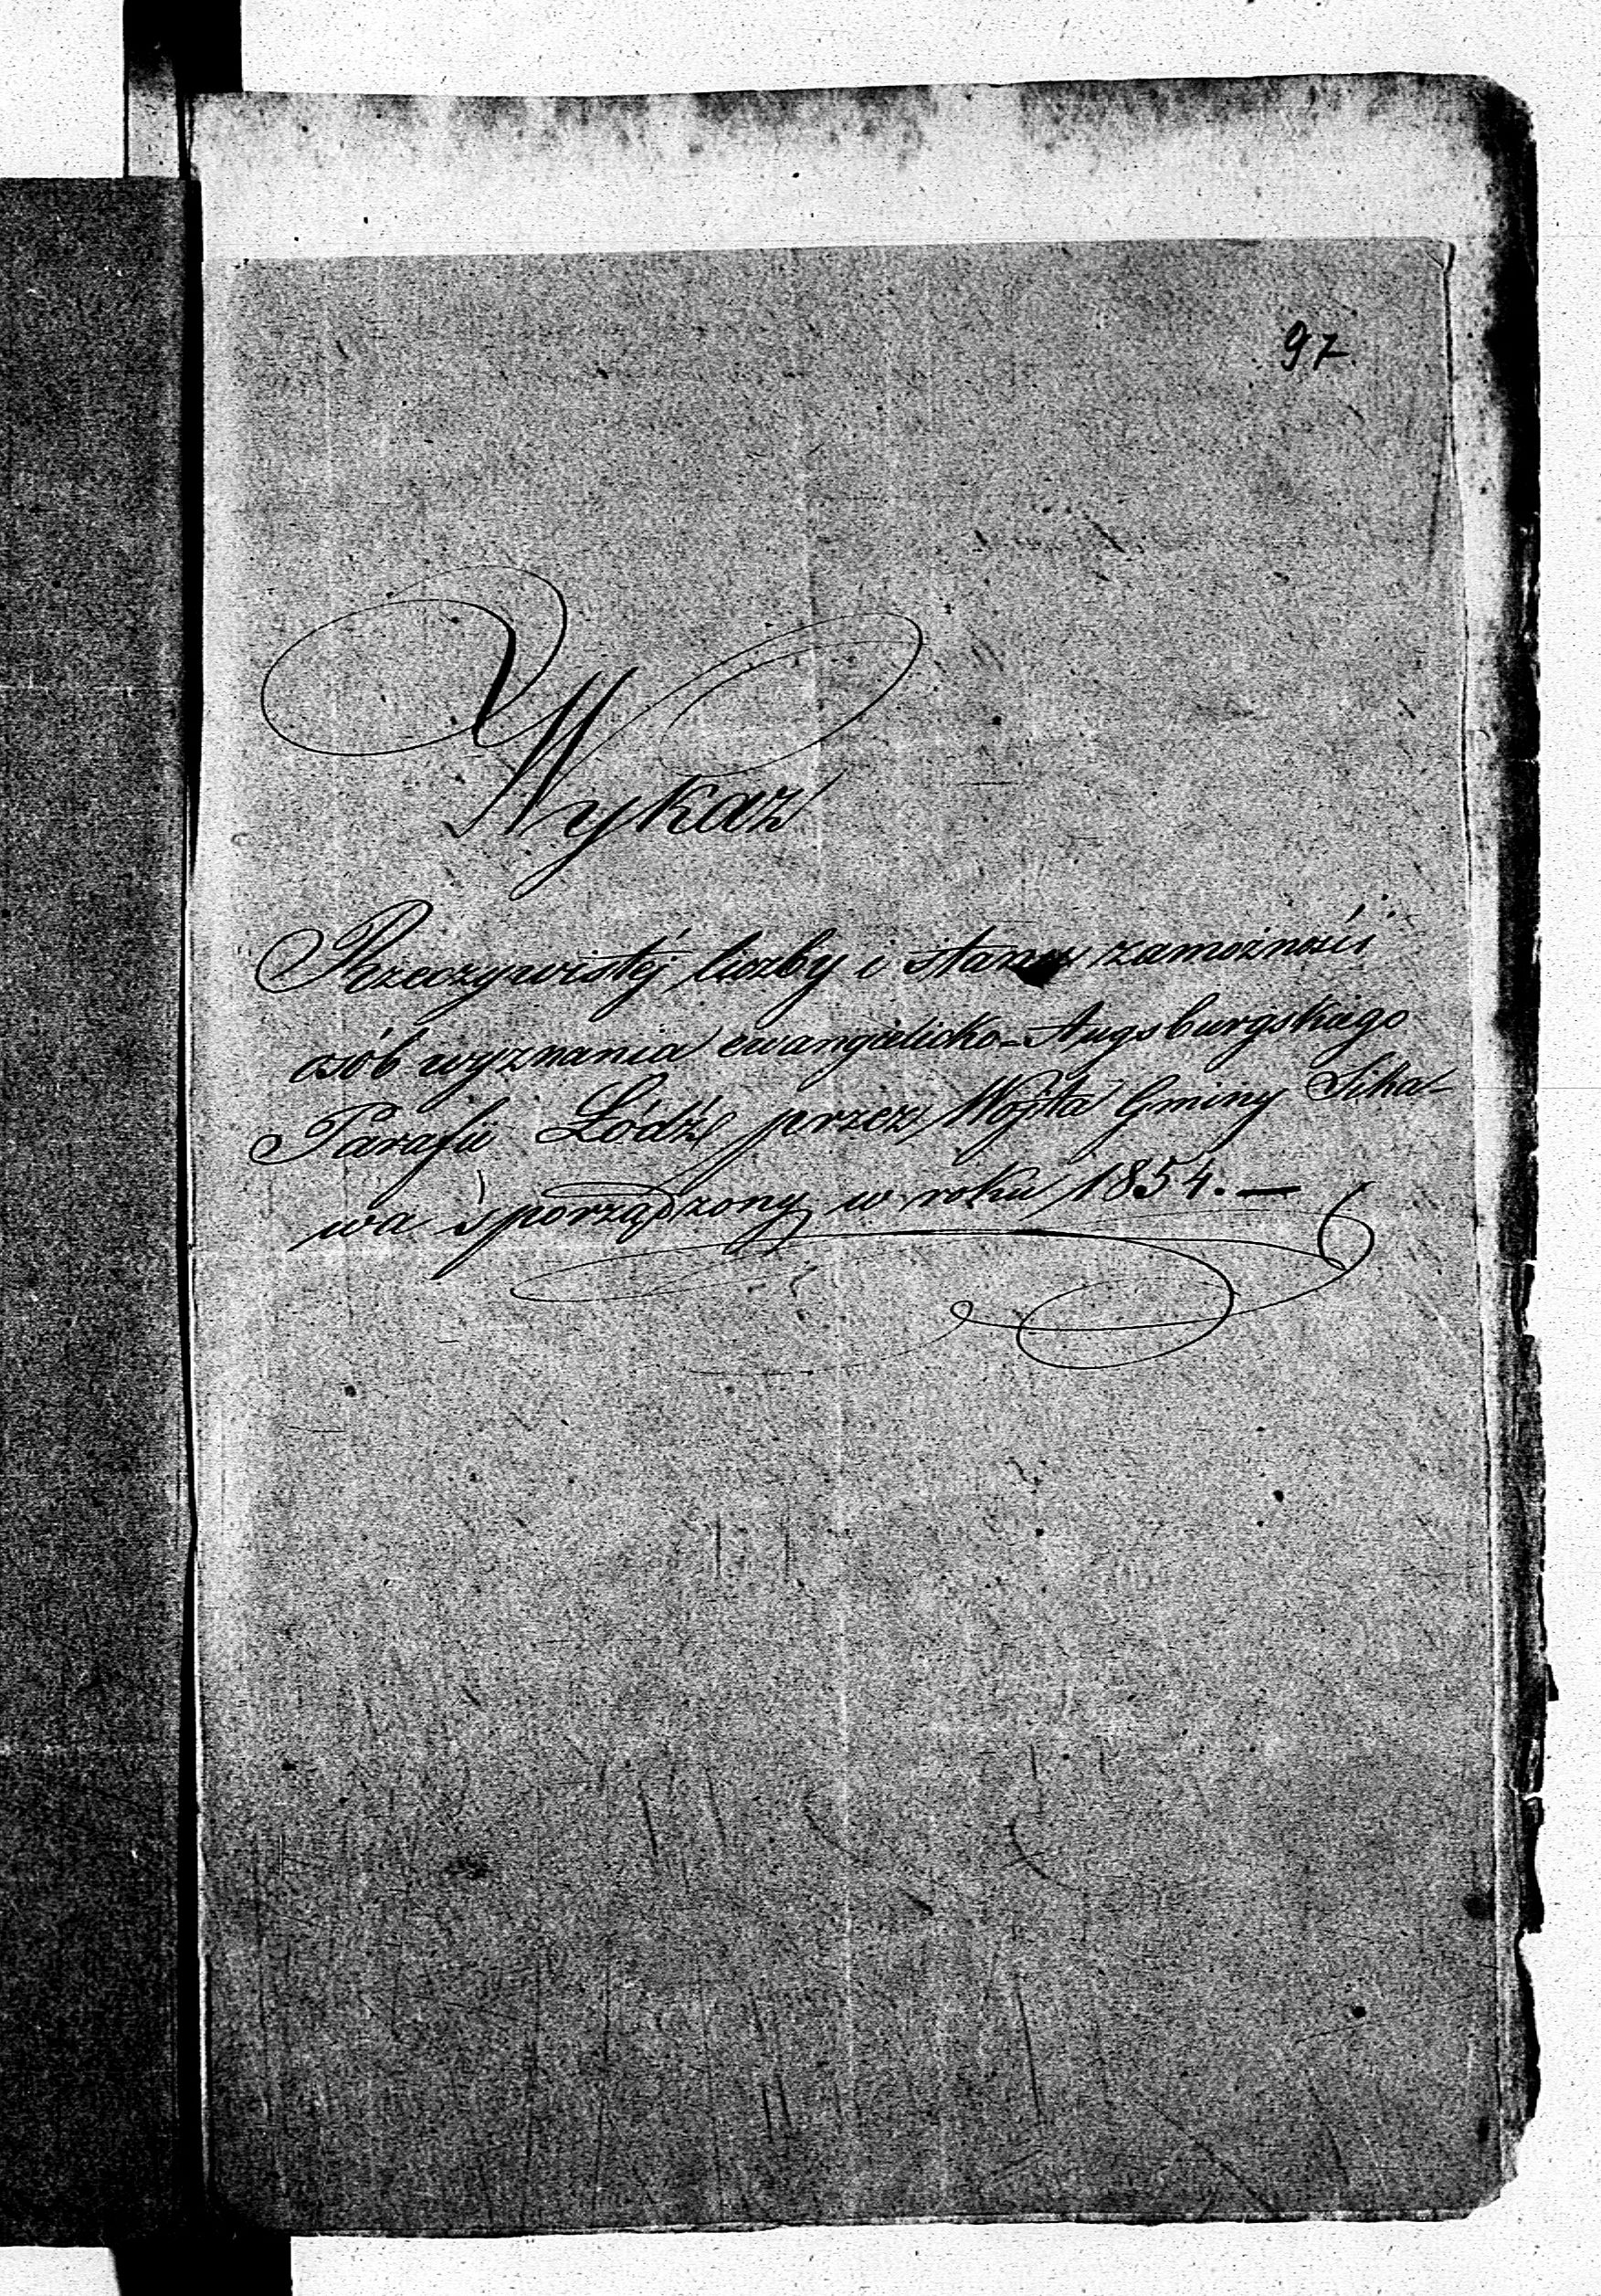 97
Wykaz
Rzeczywistéj liczby i stanu zamożności
osób wyznania ewangelicko-Augsburgskiego
Parafii Łódź przez Wójta Gminy Sika-
wa sporządzony w roku 1854. —